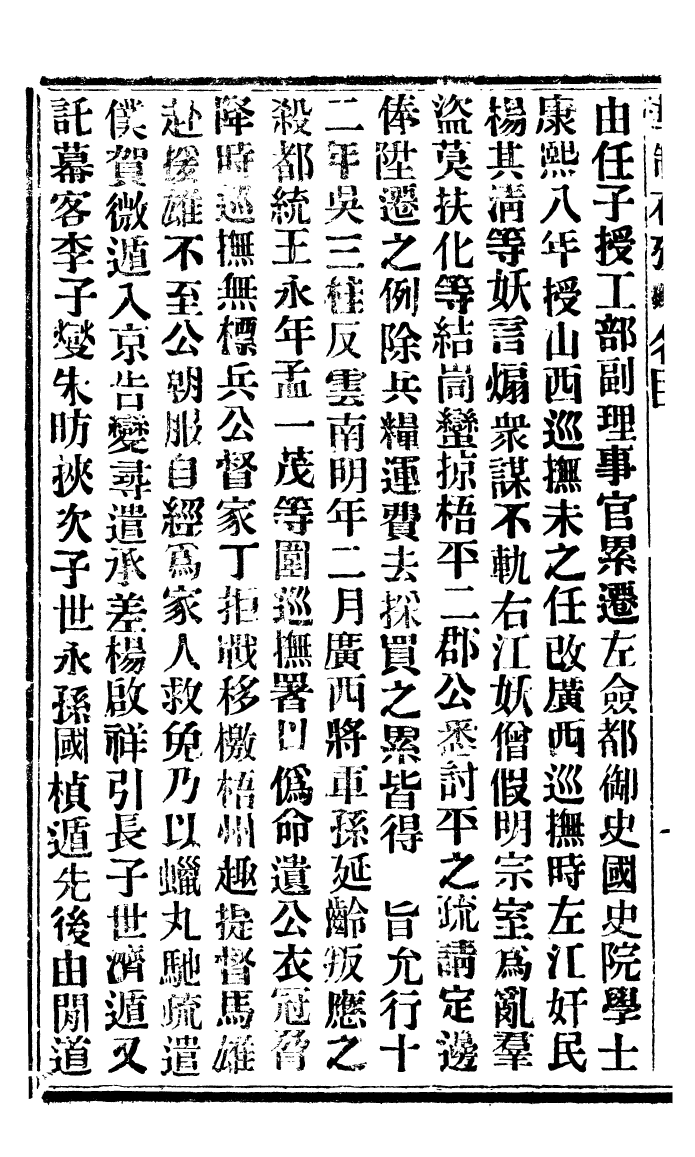 由任子授工部副理事官累遷左僉都御史國史院學士
康熙八年授山西巡撫未之任改廣西巡撫時左江奸民
楊其清等妖言煽衆謀不軌右江妖僧假明宗室爲亂羣
盜莫扶化等結峝蠻掠梧平二郡公悉討平之疏請定邊
俸陞遷之例除兵糧運費去採買之累皆得　旨允行十
二年吳三桂反雲南明年二月廣西將軍孫延齡叛應之
殺都統王永年孟一茂等圍巡撫署以僞命遺公衣冠脅
降時巡撫無標兵公督家丁拒戰移檄梧州趣提督馬雄
赴援雄不至公朝服自經爲家人救免乃以蠟丸馳疏遣
僕賀微遁入京告變尋遣承差楊啟祥引長子世濟遁又
託幕客李子燮朱昉挾次子世永孫國楨遁先後由閒道